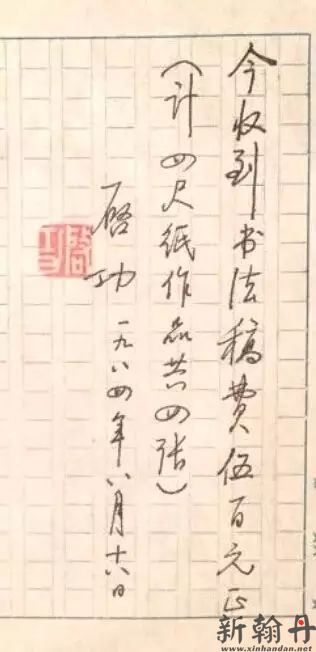 今收到书法稿费伍百元正
（计四尺纸作品共四张）
启功 一九八四年八月十六日
启功
新翰丹
www.xinhandan.net